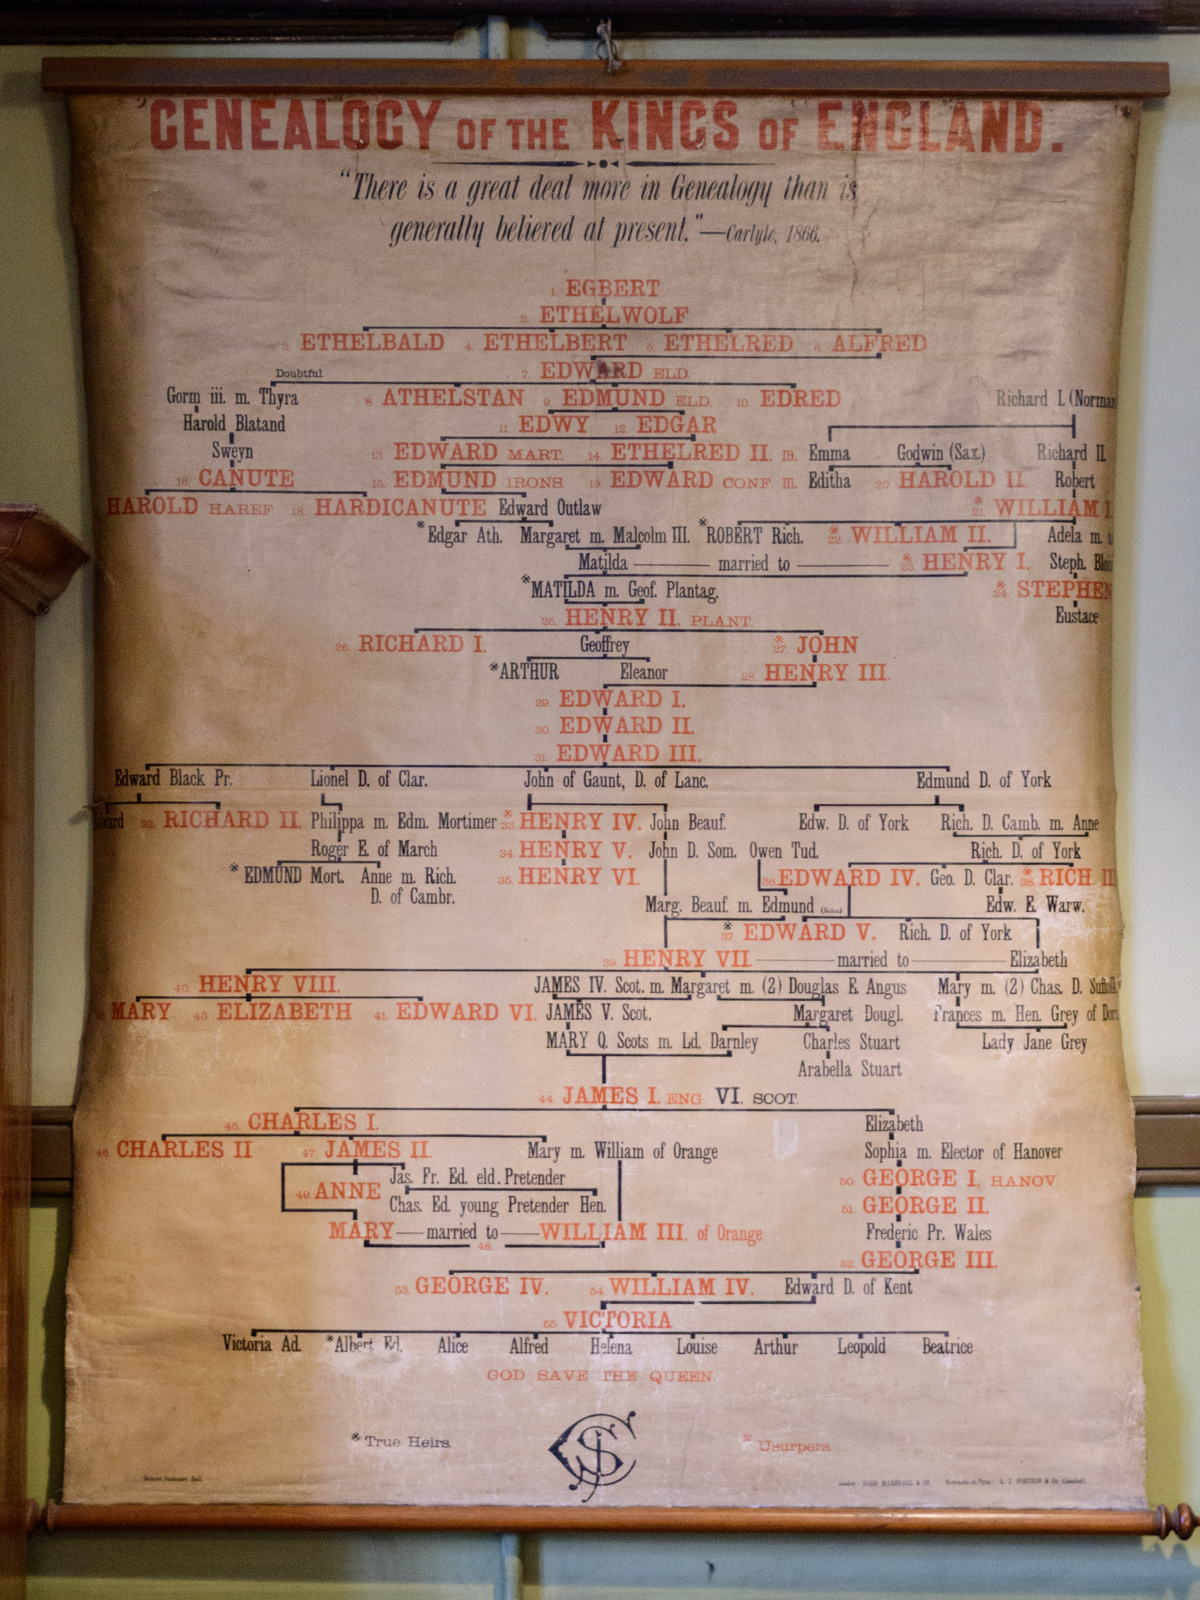 "GENEALOGY OF THE KINGS OF ENGLAND.
"There is a great deal more in Genealogy than is
generally believed at present."—Carlyle, 1866.
1. EGBERT
2. ETHELWOLF
3. ETHELBALD 4. ETHELBERT 5. ETHELRED 6. ALFRED
7. EDWARD ELD.
Doubtful
Gorm iii. m. Thyra 8. ATHELSTAN 9. EDMUND ELD. 10. EDRED Richard I. (Norman
Harold Blatand 11. EDWY 12. EDGAR
Sweyn 13. EDWARD MART. 14. ETHELRED II. m. Emma Godwin (Sax.) Richard II.
16. CANUTE 15. EDMUND IRONS. 19. EDWARD CONF m. Editha 20. HAROLD II. Robert
HAROLD HAREF 18. HARDICANUTE Edward Outlaw ※ 21. WILLIAM I.
※Edgar Ath. Margaret m. Malcolm III. ※ROBERT Rich. ※ 22. WILLIAM II. Adela m. to
Matilda — married to — ※ 23. HENRY I. Steph. Blois
※MATILDA m. Geof. Plantag. ※ 24. STEPHEN
25. HENRY II. PLANT. Eustace
26. RICHARD I. Geoffrey ※ 27. JOHN
※ARTHUR Eleanor 28. HENRY III.
29. EDWARD I.
30. EDWARD II.
31. EDWARD III.
Edward Black Pr. Lionel D. of Clar. John of Gaunt, D. of Lanc. Edmund D. of York
32. RICHARD II. Philippa m. Edm. Mortimer ※ 33. HENRY IV. John Beauf. Edw. D. of York Rich. D. Camb. m. Anne
Roger E. of March 34. HENRY V. John D. Som. Owen Tud. Rich. D. of York
※EDMUND Mort. Anne m. Rich. 35. HENRY VI. 36. EDWARD IV. Geo. D. Clar. ※ 38. RICH. III
D. of Cambr. Marg. Beauf. m. Edmund Edw. E. Warw.
※ 37. EDWARD V. Rich. D. of York
39. HENRY VII. — married to — Elizabeth
40. HENRY VIII. JAMES IV. Scot. m. Margaret m. (2) Douglas E. Angus Mary m. (2) Chas. D. Suffolk
MARY 43. ELIZABETH 41. EDWARD VI. JAMES V. Scot. Margaret Dougl. Frances m. Hen. Grey of Dors
MARY Q. Scots m. Ld. Darnley Charles Stuart Lady Jane Grey
Arabella Stuart
44. JAMES I. ENG. VI. SCOT.
45. CHARLES I. Elizabeth
46. CHARLES II 47. JAMES II. Mary m. William of Orange Sophia m. Elector of Hanover
Jas. Fr. Ed. eld. Pretender 50. GEORGE I. HANOV.
49. ANNE
Chas. Ed. young Pretender Hen. 51. GEORGE II.
MARY — married to — WILLIAM III. of Orange Frederic Pr. Wales
48. 52. GEORGE III.
53. GEORGE IV. 54. WILLIAM IV. Edward D. of Kent
55. VICTORIA
Victoria Ad. ※Albert Ed. Alice Alfred Helena Louise Arthur Leopold Beatrice
GOD SAVE THE QUEEN.
※True Heirs. ※Usurpers.